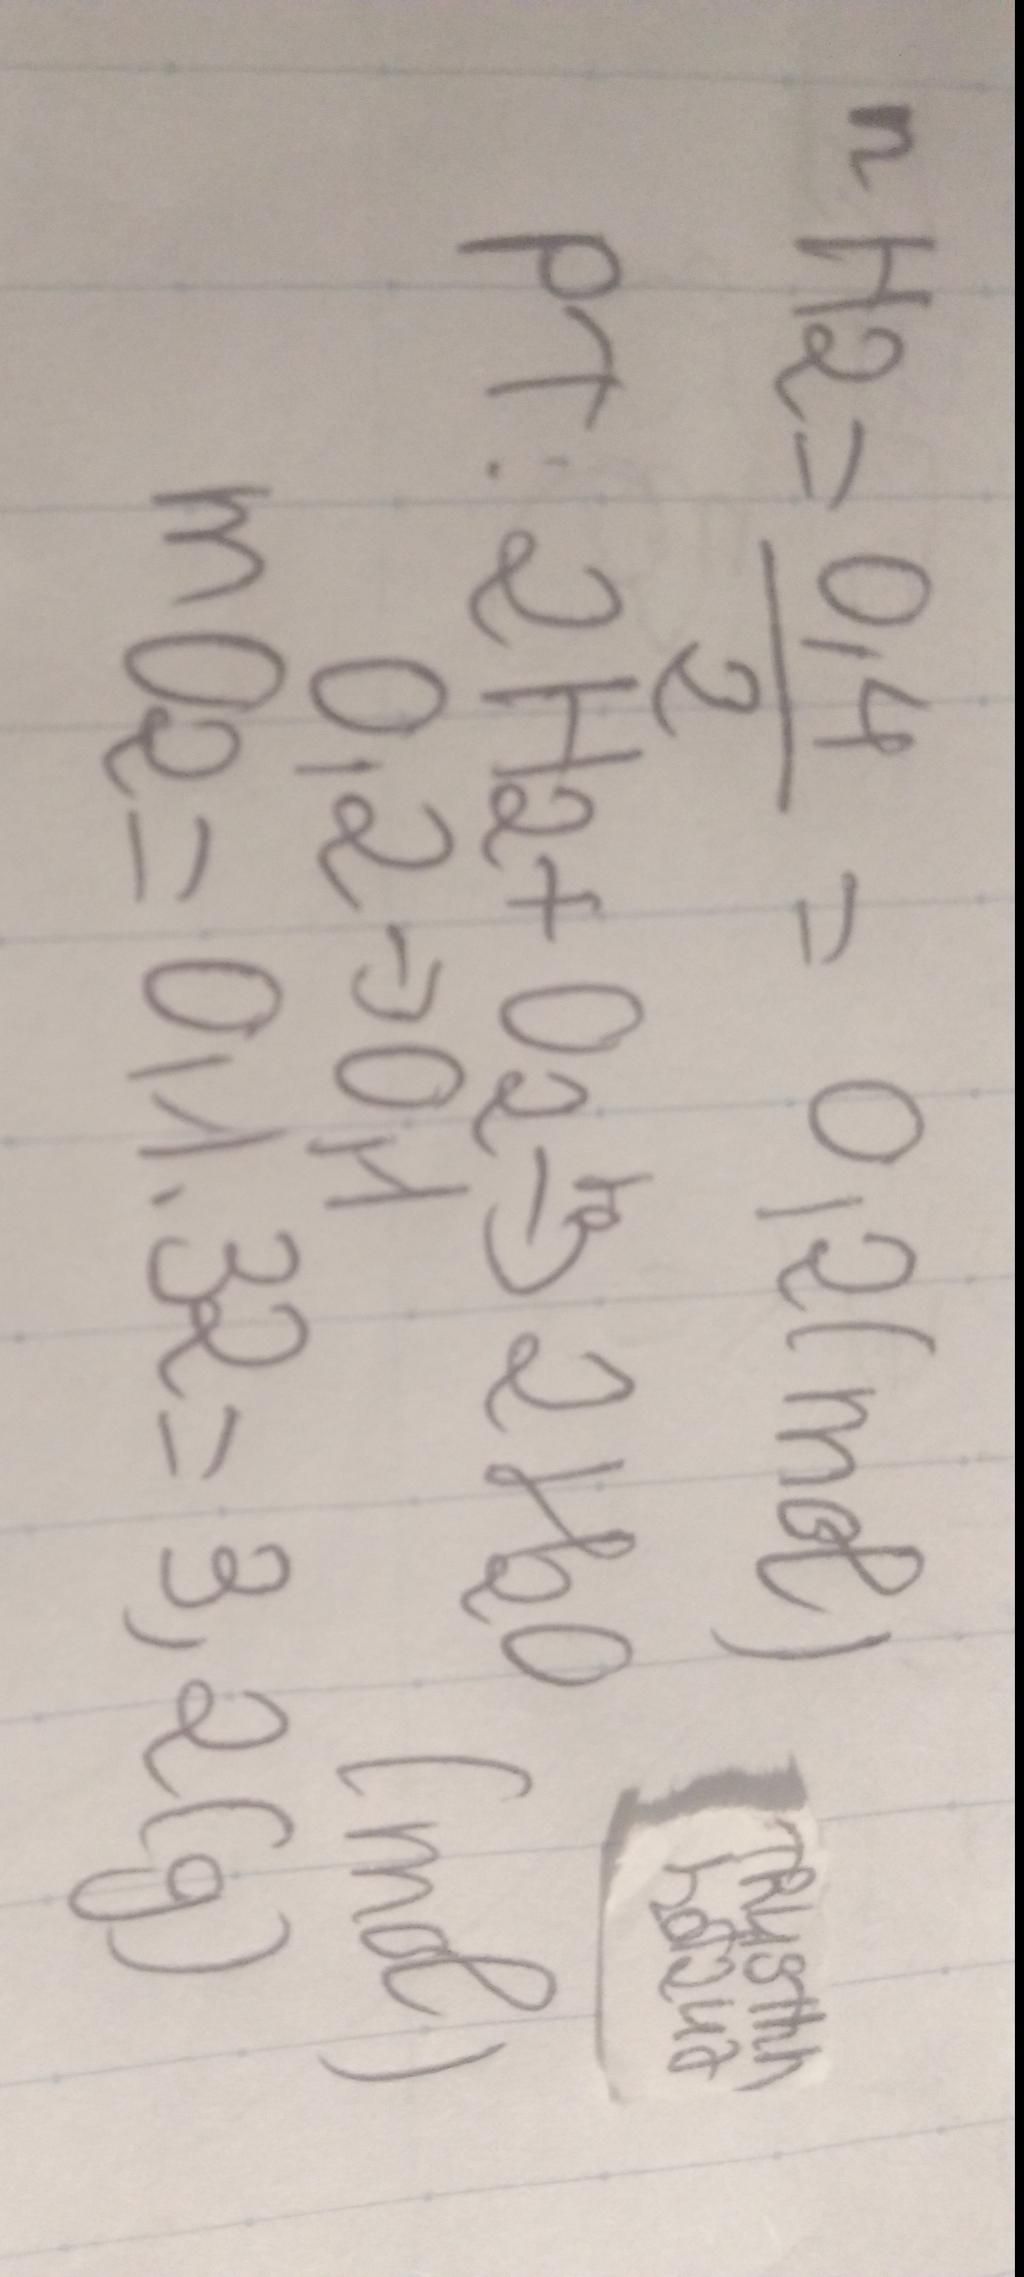 n H2 = 0,4 / 2 = 0,2 (mol)
PT : 2H2 + O2 -t°-> 2H2O
0,2 -> 0,1 (mol)
mO2 = 0,1 . 32 = 3,2 (g)